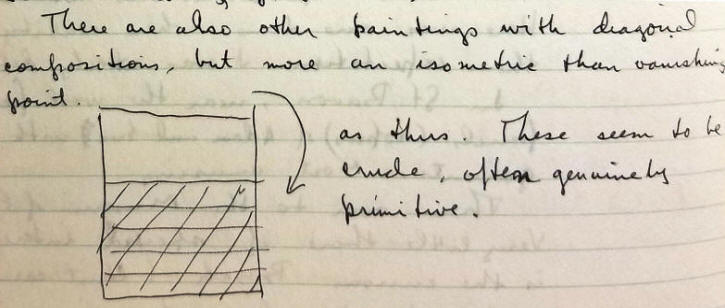 There are also other paintings with diagonal
compositions, but more an isometric than vanishing
point.
as thus. These seem to be
crude, often genuinely
primitive.